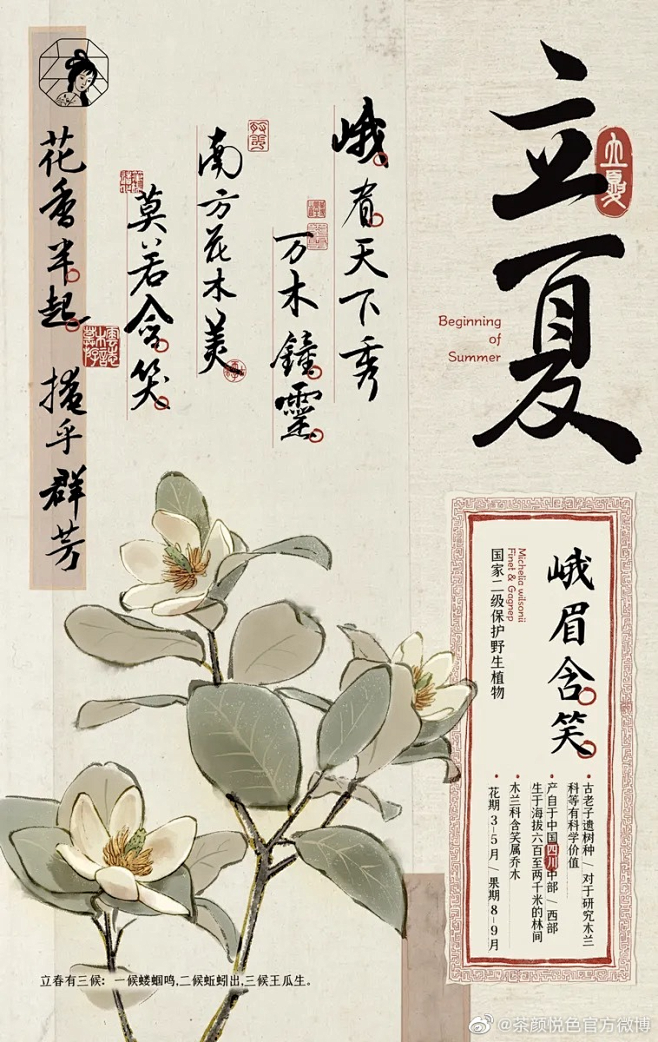 立夏
立夏
Beginning
of
Summer
峨眉天下秀
万木钟靈
南方花木美
莫若含笑
花香半起 掩乎群芳
峨眉含笑
Michelia wilsonii
Finet & Gagnep
国家二级保护野生植物
古老孑遗树种/对于研究木兰
科等有科学价值
产自于中国四川中部/西部
生于海拔六百至两千米的林间
木兰科含笑属乔木
花期3-5月/果期8-9月
立春有三候：一候蝼蝈鸣,二候蚯蚓出,三候王瓜生。
@茶颜悦色官方微博